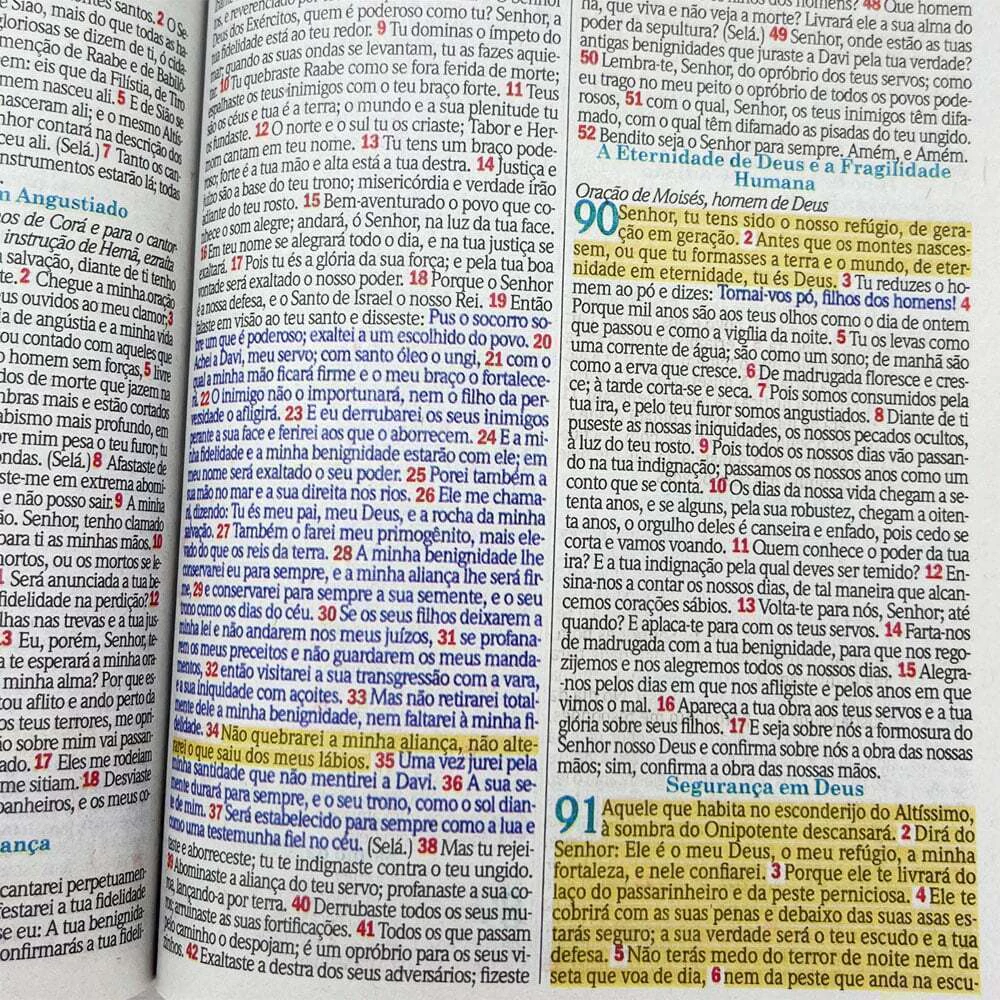 antos. 2 O Se-
e Sião, mais do que todas as ha-
gloriosas se dizem de ti, ó cida-
menção de Raabe e de Babilô-
rem: eis que da Filístia, de Tiro
nem nasceu ali. 5 E de Sião se
nasceram ali; e o mesmo Altís-
nhor contará na descrição dos
ceu ali. (Selá.) 7 Tanto os can-
instrumentos estarão lá; todas
m Angustiado
hos de Corá e para o cantor-
instrução de Hemã, ezraíta
salvação, diante de ti tenho
te. 2 Chegue a minha oração
us ouvidos ao meu clamor; 3
ia de angústia e a minha vida
ou contado com aqueles que
homem sem forças, 5 livre
dos de morte que jazem na
mbras mais e estão cortados
abismo mais profundo, em
re mim pesa o teu furor; tu
ondas. (Selá.) 8 Afastaste de
ste-me em extrema abomi-
e não posso sair. 9 A minha
ão. Senhor, tenho clamado
para ti as minhas mãos. 10
mortos, ou os mortos se le-
Será anunciada a tua be-
fidelidade na perdição? 12
lhas nas trevas e a tua jus-
13 Eu, porém, Senhor, te-
a te esperará a minha ora-
minha alma? Por que es-
tou aflito e ando perto da
os teus terrores, me opri-
o sobre mim vai passan-
ado. 17 Eles me rodeiam
me sitiam. 18 Desviaste
panheiros, e os meus co-
ança
cantarei perpetuamen-
festarei a tua fidelidade
se eu: A tua benignida-
confirmarás a tua fideli-
e reverenciado por
Deus dos Exércitos, quem é poderoso como tu? Senhor, a
fidelidade está ao teu redor. 9 Tu dominas o ímpeto do
mar; quando as suas ondas se levantam, tu as fazes aquie-
10 Tu quebraste Raabe como se fora ferida de morte;
espalhaste os teus inimigos com o teu braço forte. 11 Teus
são os céus e tua é a terra; o mundo e a sua plenitude tu
os fundaste. 12 O norte e o sul tu os criaste; Tabor e Her-
mom cantam em teu nome. 13 Tu tens um braço pode-
roso; forte é a tua mão e alta está a tua destra. 14 Justiça e
juízo são a base do teu trono; misericórdia e verdade irão
adiante do teu rosto. 15 Bem-aventurado o povo que co-
nhece o som alegre; andará, ó Senhor, na luz da tua face.
16 Em teu nome se alegrará todo o dia, e na tua justiça se
exaltará. 17 Pois tu és a glória da sua força; e pela tua boa
vontade será exaltado o nosso poder. 18 Porque o Senhor
é a nossa defesa, e o Santo de Israel o nosso Rei. 19 Então
falaste em visão ao teu santo e disseste: Pus o socorro so-
bre um que é poderoso; exaltei a um escolhido do povo. 20
Achei a Davi, meu servo; com santo óleo o ungi, 21 com o
qual a minha mão ficará firme e o meu braço o fortalece-
rá. 22 O inimigo não o importunará, nem o filho da per-
versidade o afligirá. 23 E eu derrubarei os seus inimigos
perante a sua face e ferirei aos que o aborrecem. 24 E a mi-
nha fidelidade e a minha benignidade estarão com ele; em
meu nome será exaltado o seu poder. 25 Porei também a
sua mão no mar e a sua direita nos rios. 26 Ele me chama-
rá, dizendo: Tu és meu pai, meu Deus, e a rocha da minha
salvação. 27 Também o farei meu primogênito, mais ele-
vado do que os reis da terra. 28 A minha benignidade lhe
conservarei eu para sempre, e a minha aliança lhe será fir-
me, 29 e conservarei para sempre a sua semente, e o seu
trono como os dias do céu. 30 Se os seus filhos deixarem a
minha lei e não andarem nos meus juízos, 31 se profana-
rem os meus preceitos e não guardarem os meus manda-
mentos, 32 então visitarei a sua transgressão com a vara,
e a sua iniquidade com açoites. 33 Mas não retirarei total-
mente dele a minha benignidade, nem faltarei à minha fi-
delidade. 34 Não quebrarei a minha aliança, não alte-
rarei o que saiu dos meus lábios. 35 Uma vez jurei pela
minha santidade que não mentirei a Davi. 36 A sua se-
mente durará para sempre, e o seu trono, como o sol dian-
te de mim. 37 Será estabelecido para sempre como a lua e
como uma testemunha fiel no céu. (Selá.) 38 Mas tu rejei-
taste e aborreceste; tu te indignaste contra o teu ungido.
39 Abominaste a aliança do teu servo; profanaste a sua co-
roa, lançando-a por terra. 40 Derrubaste todos os seus mu-
ros; arruinaste as suas fortificações. 41 Todos os que passam
pelo caminho o despojam; é um opróbrio para os seus vi-
zinhos. 42 Exaltaste a destra dos seus adversários; fizeste
48 Que homem
há, que viva e não veja a morte? Livrará ele a sua alma do
poder da sepultura? (Selá.) 49 Senhor, onde estão as tuas
antigas benignidades que juraste a Davi pela tua verdade?
50 Lembra-te, Senhor, do opróbrio dos teus servos; como
eu trago no meu peito o opróbrio de todos os povos pode-
rosos, 51 com o qual, Senhor, os teus inimigos têm difa-
mado, com o qual têm difamado as pisadas do teu ungido.
52 Bendito seja o Senhor para sempre. Amém, e Amém.
A Eternidade de Deus e a Fragilidade
Humana
Oração de Moisés, homem de Deus
90 Senhor, tu tens sido o nosso refúgio, de gera-
ção em geração. 2 Antes que os montes nasces-
sem, ou que tu formasses a terra e o mundo, de eter-
nidade em eternidade, tu és Deus. 3 Tu reduzes o ho-
mem ao pó e dizes: Tornai-vos pó, filhos dos homens! 4
Porque mil anos são aos teus olhos como o dia de ontem
que passou e como a vigília da noite. 5 Tu os levas como
uma corrente de água; são como um sono; de manhã são
como a erva que cresce. 6 De madrugada floresce e cres-
ce; à tarde corta-se e seca. 7 Pois somos consumidos pela
tua ira, e pelo teu furor somos angustiados. 8 Diante de ti
puseste as nossas iniquidades, os nossos pecados ocultos,
à luz do teu rosto. 9 Pois todos os nossos dias vão passan-
do na tua indignação; passamos os nossos anos como um
conto que se conta. 10 Os dias da nossa vida chegam a se-
tenta anos, e se alguns, pela sua robustez, chegam a oiten-
ta anos, o orgulho deles é canseira e enfado, pois cedo se
corta e vamos voando. 11 Quem conhece o poder da tua
ira? E a tua indignação pela qual deves ser temido? 12 En-
sina-nos a contar os nossos dias, de tal maneira que alcan-
cemos corações sábios. 13 Volta-te para nós, Senhor; até
quando? E aplaca-te para com os teus servos. 14 Farta-nos
de madrugada com a tua benignidade, para que nos rego-
zijemos e nos alegremos todos os nossos dias. 15 Alegra-
-nos pelos dias em que nos afligiste e pelos anos em que
vimos o mal. 16 Apareça a tua obra aos teus servos e a tua
glória sobre seus filhos. 17 E seja sobre nós a formosura do
Senhor nosso Deus e confirma sobre nós a obra das nossas
mãos; sim, confirma a obra das nossas mãos.
Segurança em Deus
91 Aquele que habita no esconderijo do Altíssimo,
à sombra do Onipotente descansará. 2 Dirá do
Senhor: Ele é o meu Deus, o meu refúgio, a minha
fortaleza, e nele confiarei. 3 Porque ele te livrará do
laço do passarinheiro e da peste perniciosa. 4 Ele te
cobrirá com as suas penas e debaixo das suas asas es-
tarás seguro; a sua verdade será o teu escudo e a tua
defesa. 5 Não terás medo do terror de noite nem da
seta que voa de dia, 6 nem da peste que anda na escu-